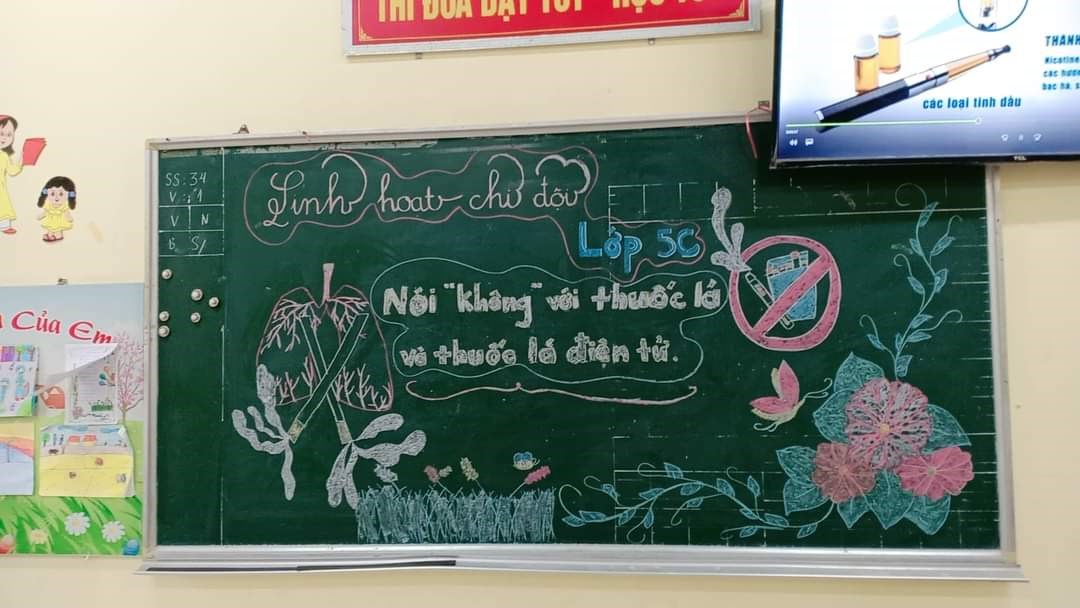 THI ĐUA DẠY TỐT - HỌC TỐT
THÀNH
Nicotine
các hươn
bạc hà, s
các loại tinh dầu
TCL
SS: 34
V: 1
V N
B S/
Sinh hoạt chi đội
Lớp 5C
Nói "không" với thuốc lá
và thuốc lá điện tử.
Của Em